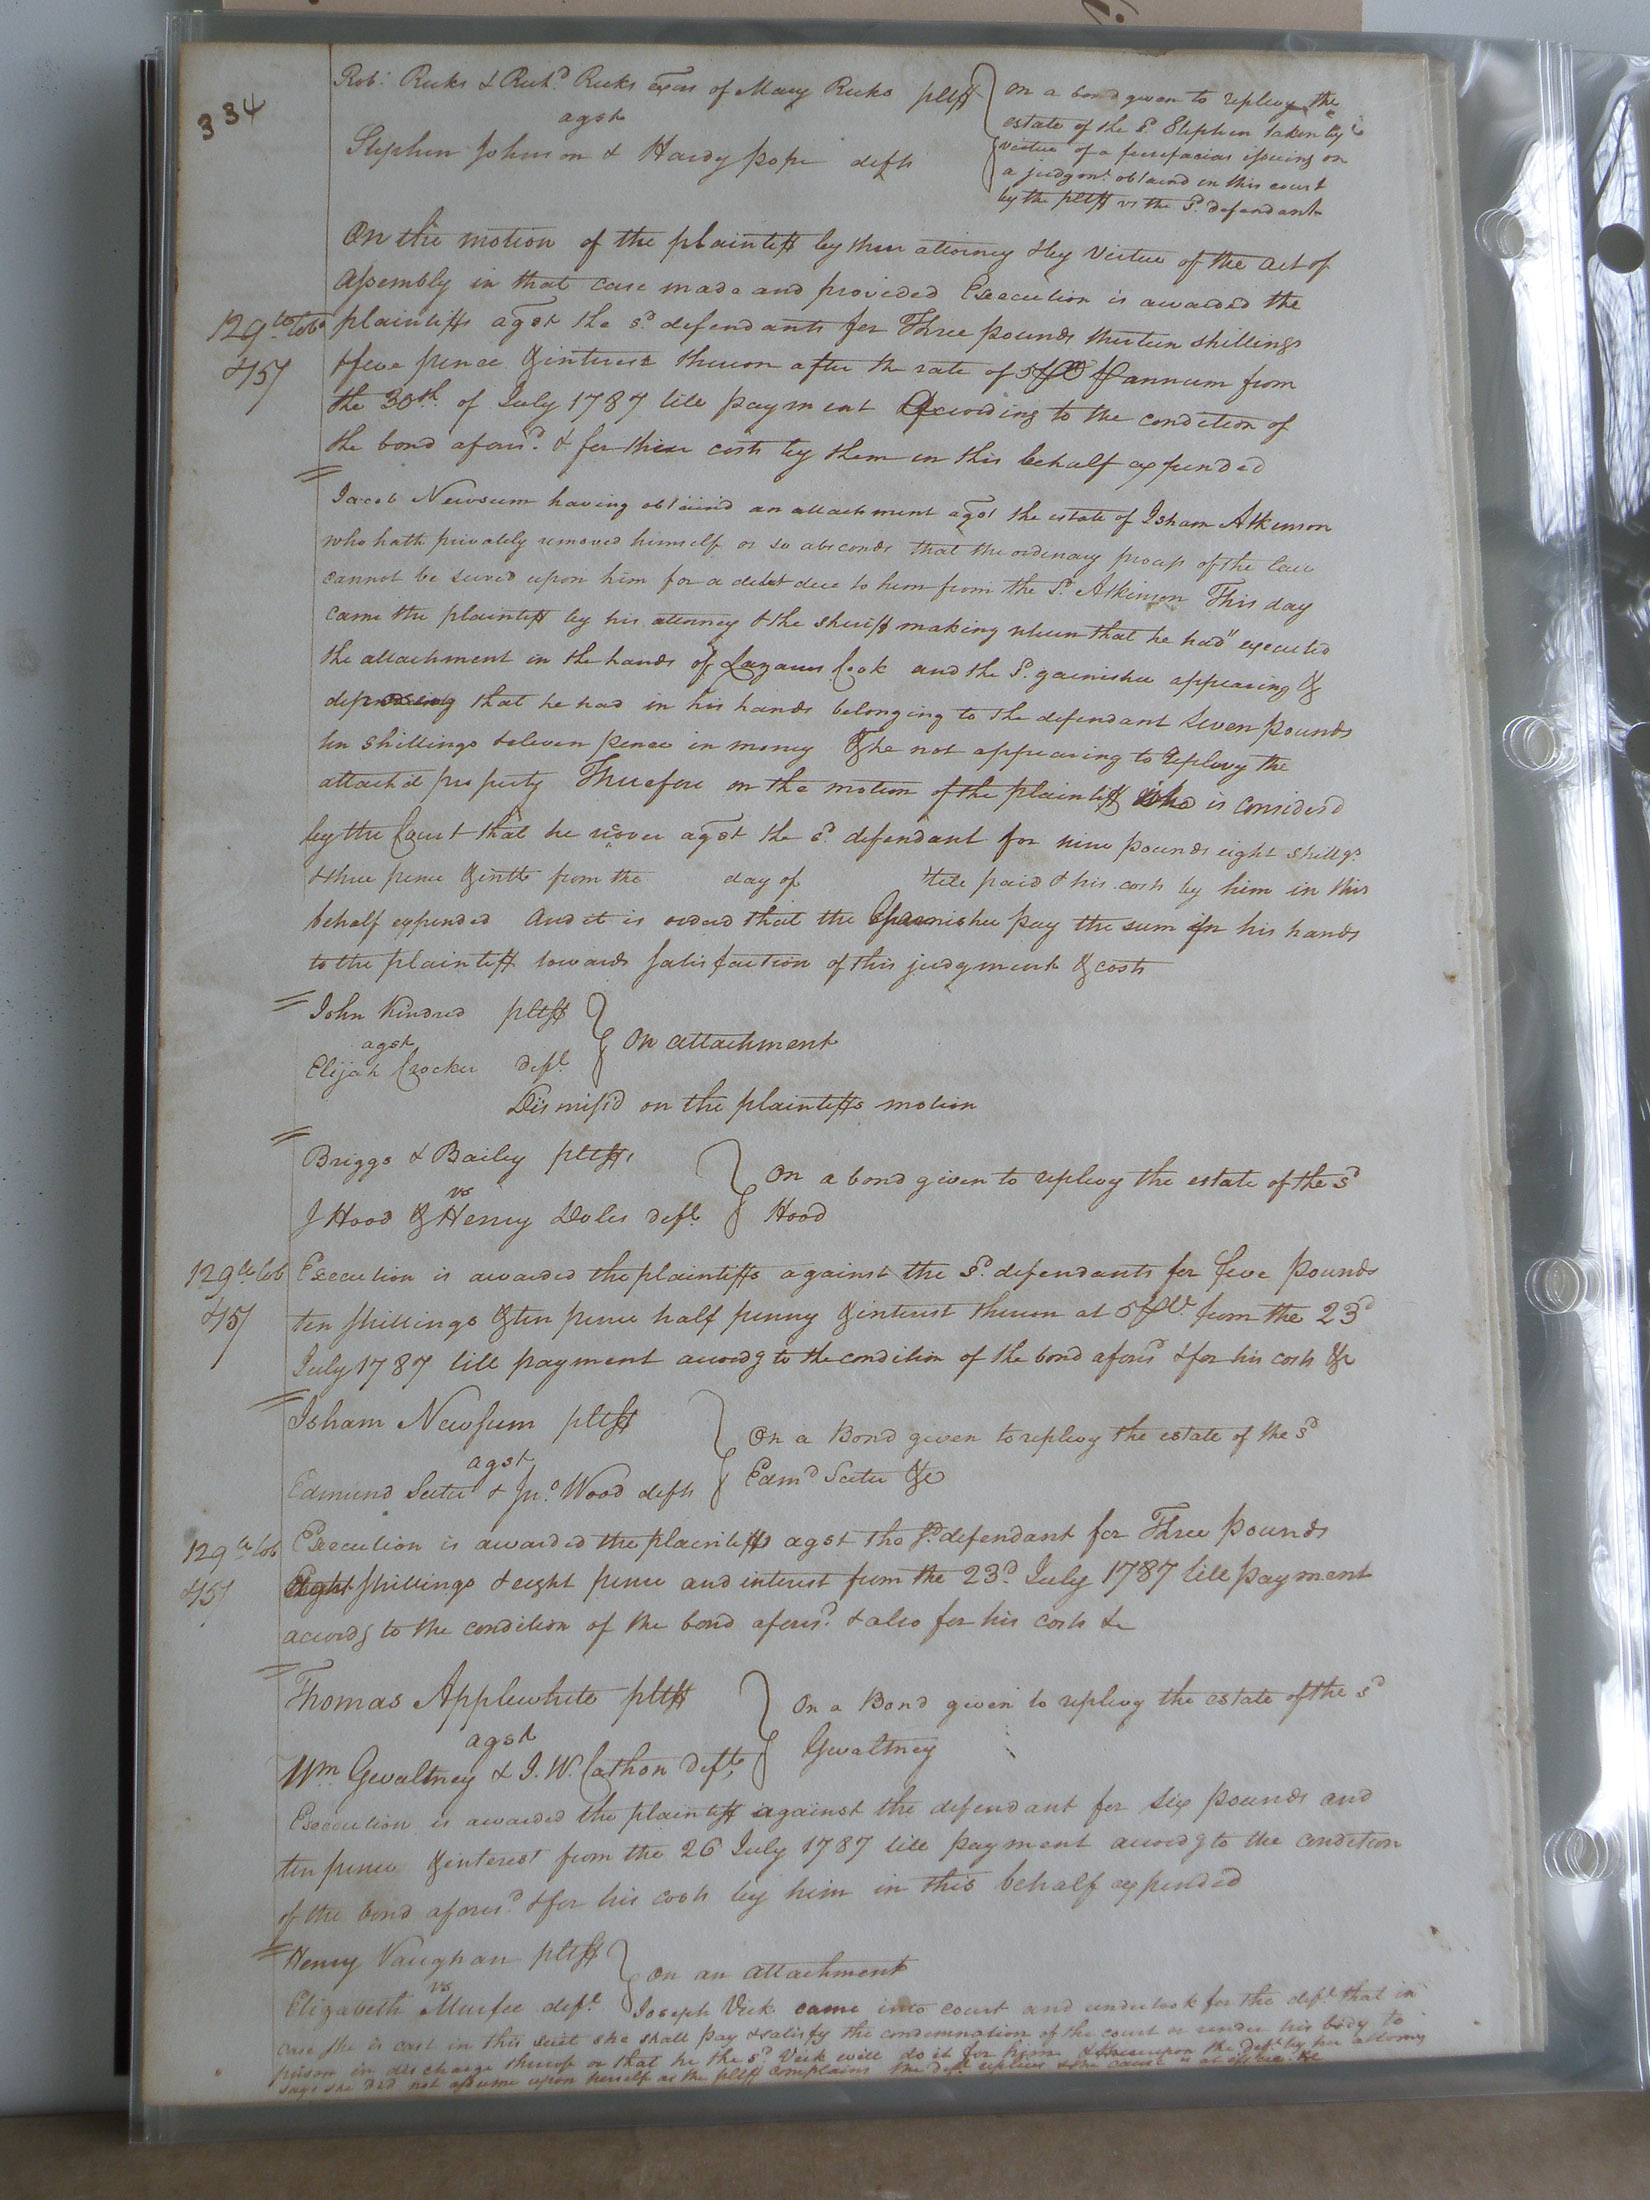 334
Rob: Ricks & Rich.d Ricks exors of Mary Ricks pltff
agst
Stephen Johnson & Hardy pope defts
on a bond given to replevy the
estate of the s.d Stephen taken by
virtue of a fierefacias issuing on
a judgmt obtaind in this court
by the pltff vs the s.d defendant
On the motion of the plaintiff by their attorney & by Virtue of the act of
assembly in that case made and provided Execution is awarded the
129 lb Tobo
plaintiffs agst the s.d defendants for Three pounds thirteen shillings
& 15/
& five pence & interest thereon after the rate of 5 annum from
the 30th of July 1787 till payment According to the condition of
the bond afores.d & for their costs by them in this behalf expended
Jacob Newsum having obtaind an attachment agst the estate of Isham Atkinson
who hath privately removed himself or so absconds that the ordenary process of the law
cannot be served upon him for a debt due to him from the s.d Atkinson This day
came the plaintiff by his attorney & the sheriff making return that he had executed
the attachment in the hands of Lazarus Cook and the s.d garnishee appearing &
that he had in his hands belonging to the defendant seven pounds
ten shillings & eleven pence in money & he not appearing to replevy the
attach'd property Therefore on the motion of the plaintiff is considerd
by the Court that he recover agst the s.d defendant for nine pounds eight shillgs
& three pence & intt from the day of till paid & his costs by him in this
behalf expended And it is orderd that the Garnishee pay the sum in his hands
to the plaintiff towards satisfaction of this judgment & costs
John Kindred pltff
agst
Elijah Crocker deft
On attachment
Dismiss'd on the plaintiffs motion
Briggs & Bailey pltffs
vs
J Hood & Henry Doles deft
On a bond given to replevy the estate of the s.d
Hood
129 lb Tob
Execution is awarded the plaintiffs against the s.d defendants for five pounds
& 15/
ten shillings & ten pence half penny & interest thereon at 5 from the 23d
July 1787 till payment accordg to the condition of the bond afores.d & for his costs &c
Isham Newsum pltff
agst
Edmund & Jn.o Wood defts
On a Bond given to replevy the estate of the s.d
Edm.d &c
129 lb Tob
Execution is awarded the plaintiffs agst the s.d defendant for Three pounds
& 15/
Eight shillings & eight pence and interest from the 23d July 1787 till payment
accordg to the condition of the bond afores.d & also for his costs &c
Thomas Applewhite pltff
agst
Wm Gwaltney & J. W. Cathon defts
On a Bond given to replevy the estate of the s.d
Gwaltney
Execution is awarded the plaintiff against the defendant for six pounds and
ten pence & interest from the 26 July 1787 till payment accordg to the condition
of the bond afores.d & for his costs by him in this behalf expended
Henry Vaughan pltff
vs
Elizabeth Murfee deft
on an attachment
Joseph Vick came into court and undertook for the deft that in
case she is cast in this suit she shall pay & satisfy the condemnation of the court or render his body to
prison in discharge thereof or that he the s.d Vick will do it for him & thereupon the deft by her attorney
says she did not assume upon herself as the pltff complains the deft replies & the cause is at issue